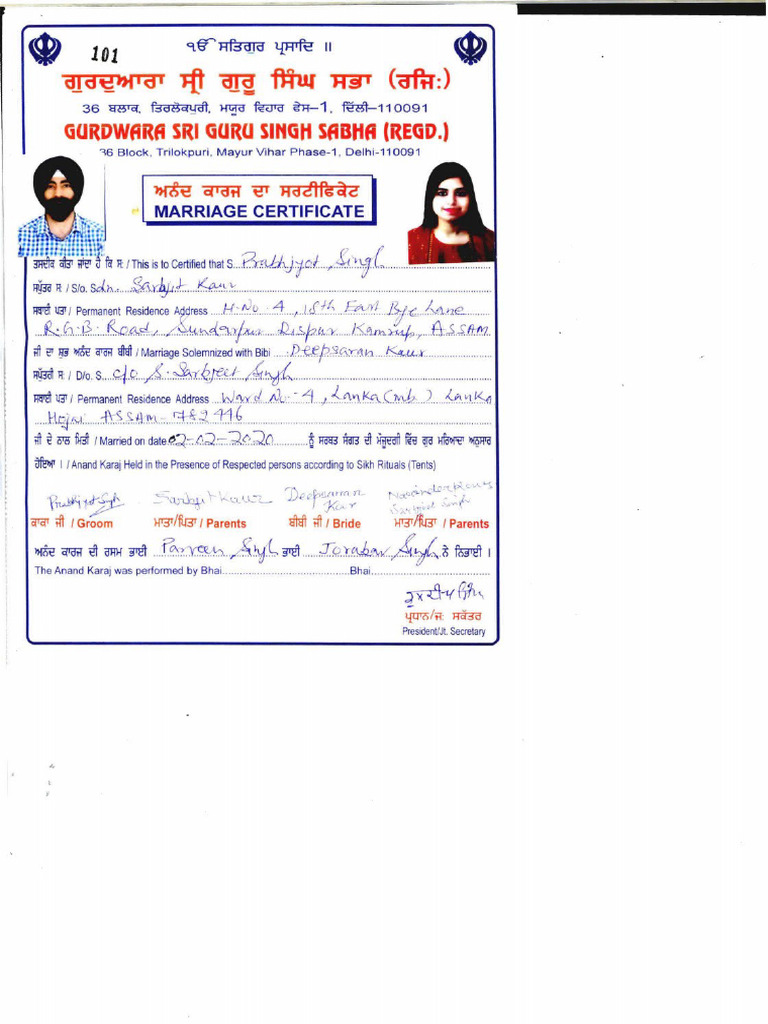 101
ੴ ਸਤਿਗੁਰ ਪ੍ਰਸਾਦਿ ॥
ਗੁਰਦੁਆਰਾ ਸ੍ਰੀ ਗੁਰੂ ਸਿੰਘ ਸਭਾ (ਰਜਿ:)
36 ਬਲਾਕ, ਤਿਰਲੋਕਪੁਰੀ, ਮਯੂਰ ਵਿਹਾਰ ਫੇਸ-1, ਦਿੱਲੀ-110091
GURDWARA SRI GURU SINGH SABHA (REGD.)
36 Block, Trilokpuri, Mayur Vihar Phase-1, Delhi-110091
ਅਨੰਦ ਕਾਰਜ ਦਾ ਸਰਟੀਫਿਕੇਟ
MARRIAGE CERTIFICATE
ਤਸਦੀਕ ਕੀਤਾ ਜਾਂਦਾ ਹੈ ਕਿ ਸ: / This is to Certified that S. Prabhjyot Singh
ਸਪੁੱਤਰ ਸ. / S/o. Sdn. Sarbjit Kaur
ਸਥਾਈ ਪਤਾ / Permanent Residence Address H.No. 4, 18th East Bye Lane
R.G.B. Road, Sundarpur Dispur Kamrup, ASSAM
ਜੀ ਦਾ ਸ਼ੁਭ ਅਨੰਦ ਕਾਰਜ ਬੀਬੀ / Marriage Solemnized with Bibi Deepsaran Kaur
ਸਪੁੱਤਰੀ ਸ. / D/o. S. C/o S. Sarbjeet Singh
ਸਥਾਈ ਪਤਾ / Permanent Residence Address Ward No.-4, Lanka (mb) Lanka
Hojai ASSAM-782446
ਜੀ ਦੇ ਨਾਲ ਮਿਤੀ / Married on date 02-02-2020 ਨੂੰ ਸਰਬਤ ਸੰਗਤ ਦੀ ਮੌਜੂਦਗੀ ਵਿੱਚ ਗੁਰ ਮਰਿਆਦਾ ਅਨੁਸਾਰ
ਹੋਇਆ । / Anand Karaj Held in the Presence of Respected persons according to Sikh Rituals (Tents)
Prabhjyot Singh Sarbjit Kaur Deepsaran Kaur Sarbjeet Singh
ਕਾਕਾ ਜੀ / Groom ਮਾਤਾ/ਪਿਤਾ / Parents ਬੀਬੀ ਜੀ / Bride ਮਾਤਾ/ਪਿਤਾ / Parents
ਅਨੰਦ ਕਾਰਜ ਦੀ ਰਸਮ ਭਾਈ Parveen Singh ਭਾਈ Jorabar Singh ਨੇ ਨਿਭਾਈ ।
The Anand Karaj was performed by Bhai Bhai
ਪ੍ਰਧਾਨ/ਜ: ਸਕੱਤਰ
President/Jt. Secretary